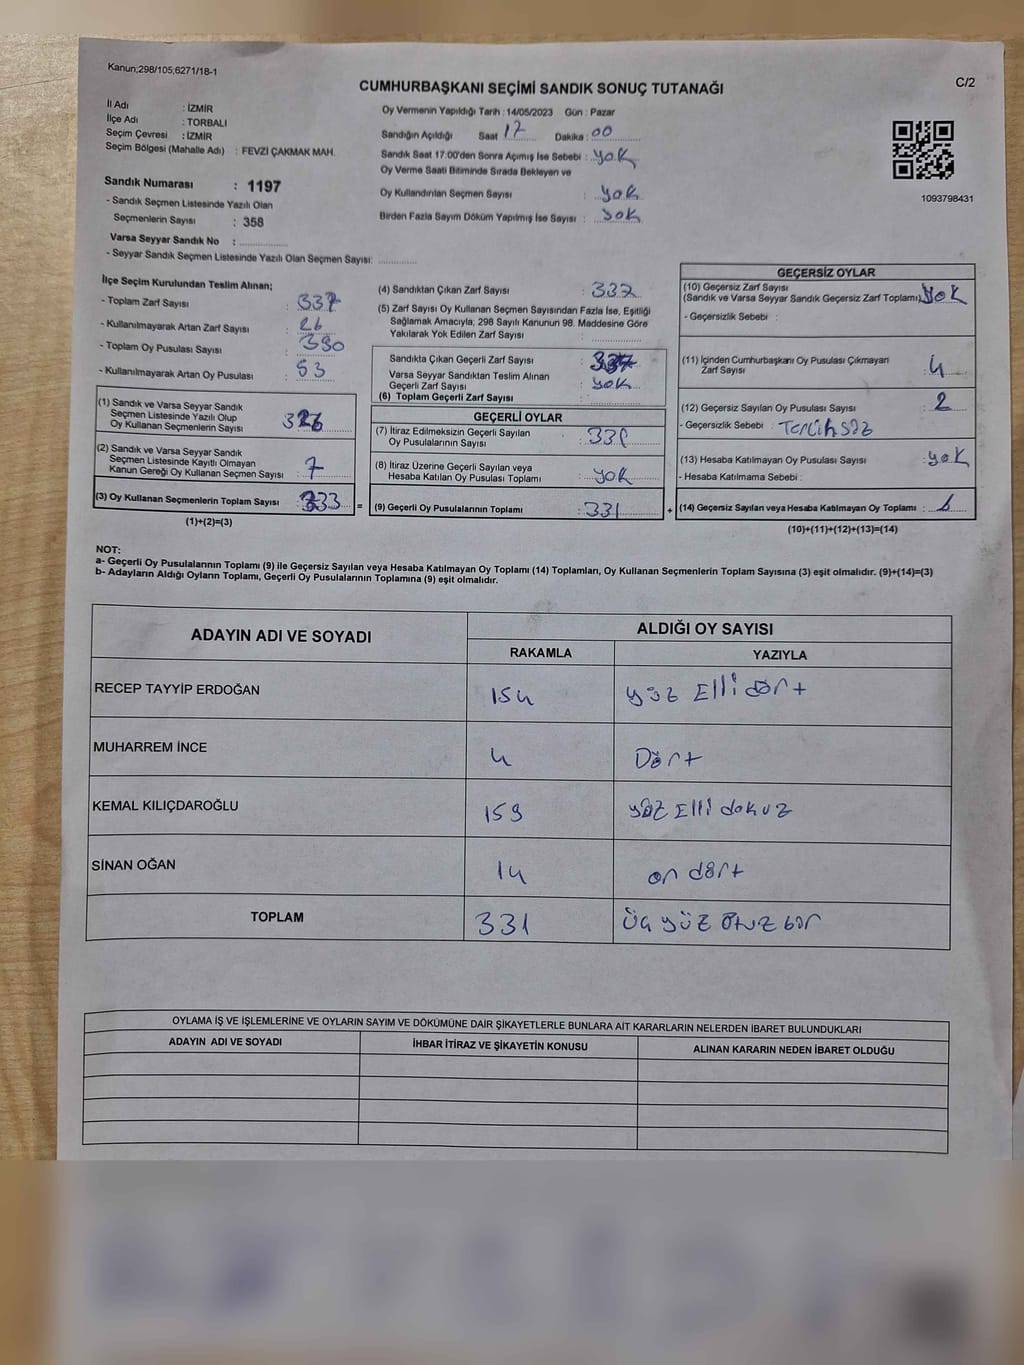 Kanun;298/105,6271/18-1
CUMHURBAŞKANI SEÇİMİ SANDIK SONUÇ TUTANAĞI
C/2
İl Adı : İZMİR
İlçe Adı : TORBALI
Seçim Çevresi : İZMİR
Seçim Bölgesi (Mahalle Adı) : FEVZİ ÇAKMAK MAH.
Sandık Numarası : 1197
- Sandık Seçmen Listesinde Yazılı Olan
Seçmenlerin Sayısı : 358
Varsa Seyyar Sandık No :
- Seyyar Sandık Seçmen Listesinde Yazılı Olan Seçmen Sayısı:
Oy Vermenin Yapıldığı Tarih : 14/05/2023 Gün : Pazar
Sandığın Açıldığı Saat 17 Dakika : 00
Sandık Saat 17:00'den Sonra Açımış İse Sebebi : yok
Oy Verme Saati Bitiminde Sırada Bekleyen ve
Oy Kullandırılan Seçmen Sayısı : yok
Birden Fazla Sayım Döküm Yapılmış İse Sayısı : yok
1093798431
İlçe Seçim Kurulundan Teslim Alınan;
- Toplam Zarf Sayısı :
- Kullanılmayarak Artan Zarf Sayısı : 26
- Toplam Oy Pusulası Sayısı : 390
- Kullanılmayarak Artan Oy Pusulası : 53
(1) Sandık ve Varsa Seyyar Sandık
Seçmen Listesinde Yazılı Olup
Oy Kullanan Seçmenlerin Sayısı : 326
(2) Sandık ve Varsa Seyyar Sandık
Seçmen Listesinde Kayıtlı Olmayan
Kanun Gereği Oy Kullanan Seçmen Sayısı : 7
(3) Oy Kullanan Seçmenlerin Toplam Sayısı : 333 =
(1)+(2)=(3)
(4) Sandıktan Çıkan Zarf Sayısı : 337
(5) Zarf Sayısı Oy Kullanan Seçmen Sayısından Fazla İse, Eşitliği
Sağlamak Amacıyla, 298 Sayılı Kanunun 98. Maddesine Göre
Yakılarak Yok Edilen Zarf Sayısı :
Sandıkta Çıkan Geçerli Zarf Sayısı : 337
Varsa Seyyar Sandıktan Teslim Alınan
Geçerli Zarf Sayısı : yok
(6) Toplam Geçerli Zarf Sayısı :
GEÇERLİ OYLAR
(7) İtiraz Edilmeksizin Geçerli Sayılan
Oy Pusulalarının Sayısı : 331
(8) İtiraz Üzerine Geçerli Sayılan veya
Hesaba Katılan Oy Pusulası Toplamı : yok
(9) Geçerli Oy Pusulalarının Toplamı : 331 +
GEÇERSİZ OYLAR
(10) Geçersiz Zarf Sayısı
(Sandık ve Varsa Seyyar Sandık Geçersiz Zarf Toplamı) yok
- Geçersizlik Sebebi :
(11) İçinden Cumhurbaşkanı Oy Pusulası Çıkmayan
Zarf Sayısı : 4
(12) Geçersiz Sayılan Oy Pusulası Sayısı : 2
- Geçersizlik Sebebi : Tercihsiz
(13) Hesaba Katılmayan Oy Pusulası Sayısı : yok
- Hesaba Katılmama Sebebi :
(14) Geçersiz Sayılan veya Hesaba Katılmayan Oy Toplamı : 6
(10)+(11)+(12)+(13)=(14)
NOT:
a- Geçerli Oy Pusulalarının Toplamı (9) ile Geçersiz Sayılan veya Hesaba Katılmayan Oy Toplamı (14) Toplamları, Oy Kullanan Seçmenlerin Toplam Sayısına (3) eşit olmalıdır. (9)+(14)=(3)
b- Adayların Aldığı Oyların Toplamı, Geçerli Oy Pusulalarının Toplamına (9) eşit olmalıdır.
ADAYIN ADI VE SOYADI
ALDIĞI OY SAYISI
RAKAMLA YAZIYLA
RECEP TAYYİP ERDOĞAN 154 yüz Elli dört
MUHARREM İNCE 4 Dört
KEMAL KILIÇDAROĞLU 159 yüz Elli dokuz
SİNAN OĞAN 14 on dört
TOPLAM 331 üç yüz otuz bir
OYLAMA İŞ VE İŞLEMLERİNE VE OYLARIN SAYIM VE DÖKÜMÜNE DAİR ŞİKAYETLERLE BUNLARA AİT KARARLARIN NELERDEN İBARET BULUNDUKLARI
ADAYIN ADI VE SOYADI İHBAR İTİRAZ VE ŞİKAYETİN KONUSU ALINAN KARARIN NEDEN İBARET OLDUĞU